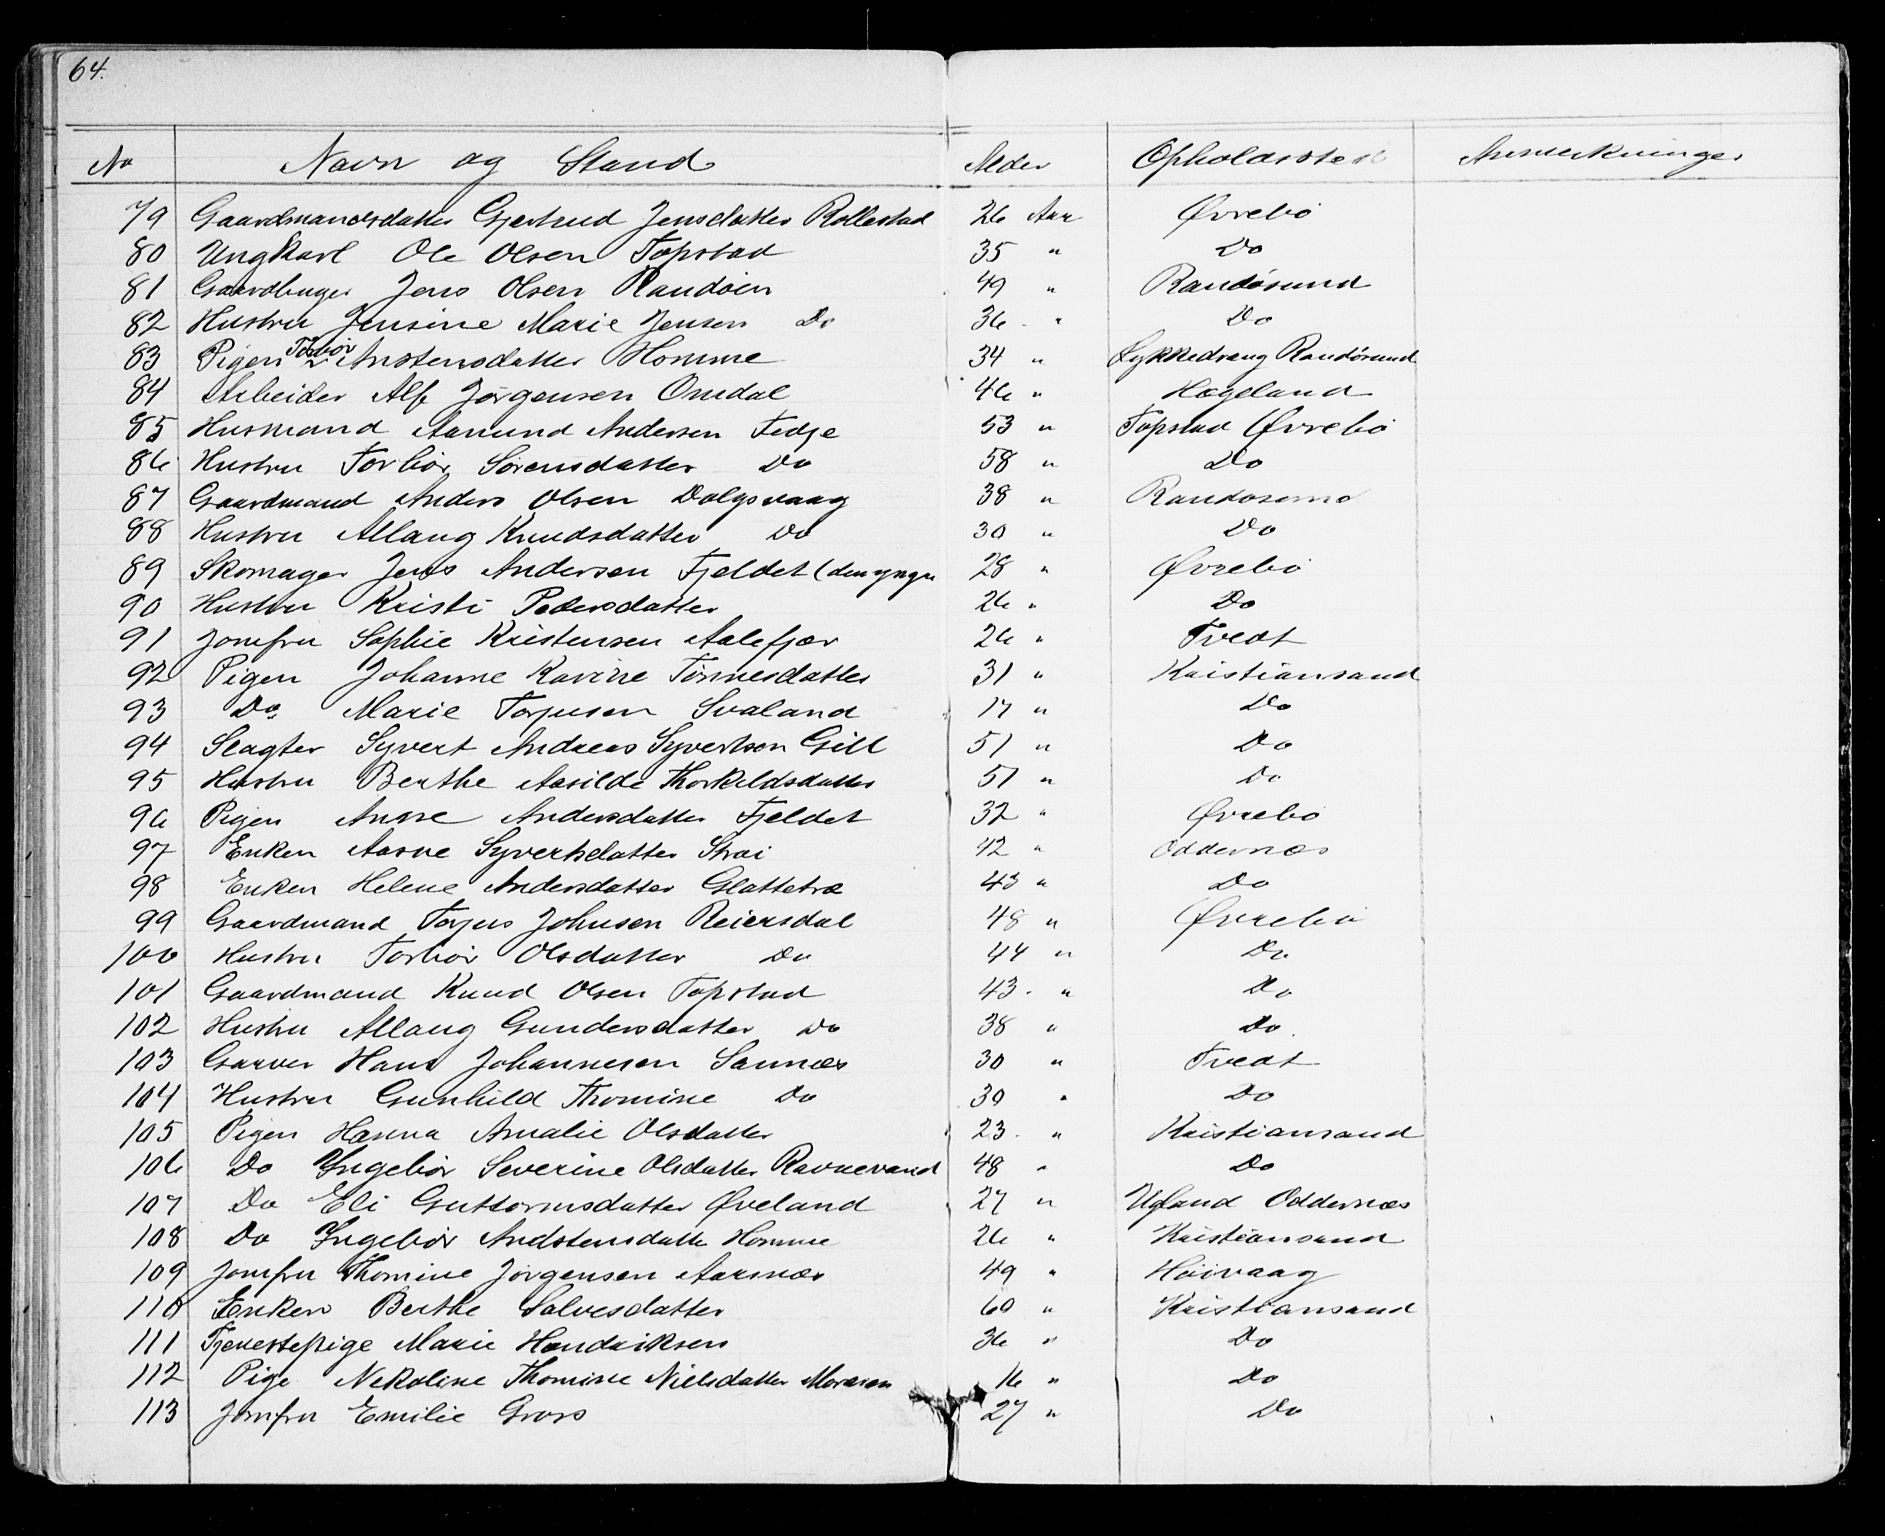 64.
No Navn og Stand Alder Opholdssted Anmerkninger
79 Gaardmandsdatter Gjertrud Jensdatter Rollestad 26 Aar Øvrebö
80 Ungkarl Ole Olsen Topstad 35 " Do
81 Gaardbruger Jens Olsen Randöen 49 " Randösund
82 Hustru Jensine Marie Jensen Do 36 " Do
83 Pigen Torbör Anstensdatter Homme 34 " Lykkedrang Randösund
84 Arbeider Alf Jörgensen Omdal 46 " Hægeland
85 Husmand Aamund Andersen Fedje 53 " Topstad Øvrebö
86 Hustru Torbör Sörensdatter Do 58 " Do
87 Gaardmand Anders Olsen Dolgsvaag 38 " Randösund
88 Hustru Allaug Knudsdatter Do 30 " Do
89 Skomager Jens Andersen Fjeldet (den yngre 28 " Øvrebö
90 Hustru Kristi Pedersdatter 26 " Do
91 Jomfru Sophie Kristensen Aalefjær 26 " Tvedt
92 Pigen Johanne Karine Tönnesdatter 31 " Kristiansand
93 Do Marie Torjusen Svaland 17 " Do
94 Slagter Syvert Andreas Syvertsen Gill 51 " Do
95 Hustru Berthe Aasilde Thorkildsdatter 51 " Do
96 Pigen Anne Andersdatter Fjeldet 32 " Øvrebö
97 Enken Aasne Syvertsdatter Strai 42 " Oddernæs
98 Enken Helene Andersdatter Glattetræ 43 " Do
99 Gaardmand Torjus Johnsen Reiersdal 48 " Øvrebö
100 Hustru Torbör Olsdatter Do 44 " Do
101 Gaardmand Knud Olsen Topstad 43 " Do
102 Hustru Allaug Gundersdatter Do 38 " Do
103 Garver Hans Johannesen Sannæs 30 " Tvedt
104 Hustru Gunhild Thomine Do 30 " Do
105 Pigen Hanna Amalie Olsdatter 23 " Kristiansand
106 Do Ingebör Severine Olsdatter Ravnevand 48 " Do
107 Do Eli Guttormsdatter Øveland 27 " Ugland Oddernæs
108 Do Ingebör Andstensdatter Homme 26 " Kristiansand
109 Jomfru Thomine Jörgensen Aarsnæs 49 " Höivaag
110 Enken Berthe Salvesdatter 60 " Kristiansand
111 Tjenestepige Marie Hendriksen 36 " Do
112 Pige Nekoline Thomine Nielsdatter 16 " Do
113 Jomfru Emilie Gross 27 " Do